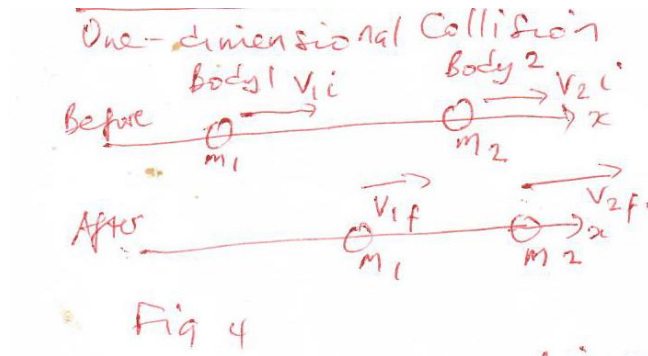 One-dimensional Collision
Body1 V1i Body 2 V2i
Before x
m1 m2
V1f V2f
After x
m1 m2
Fig 4